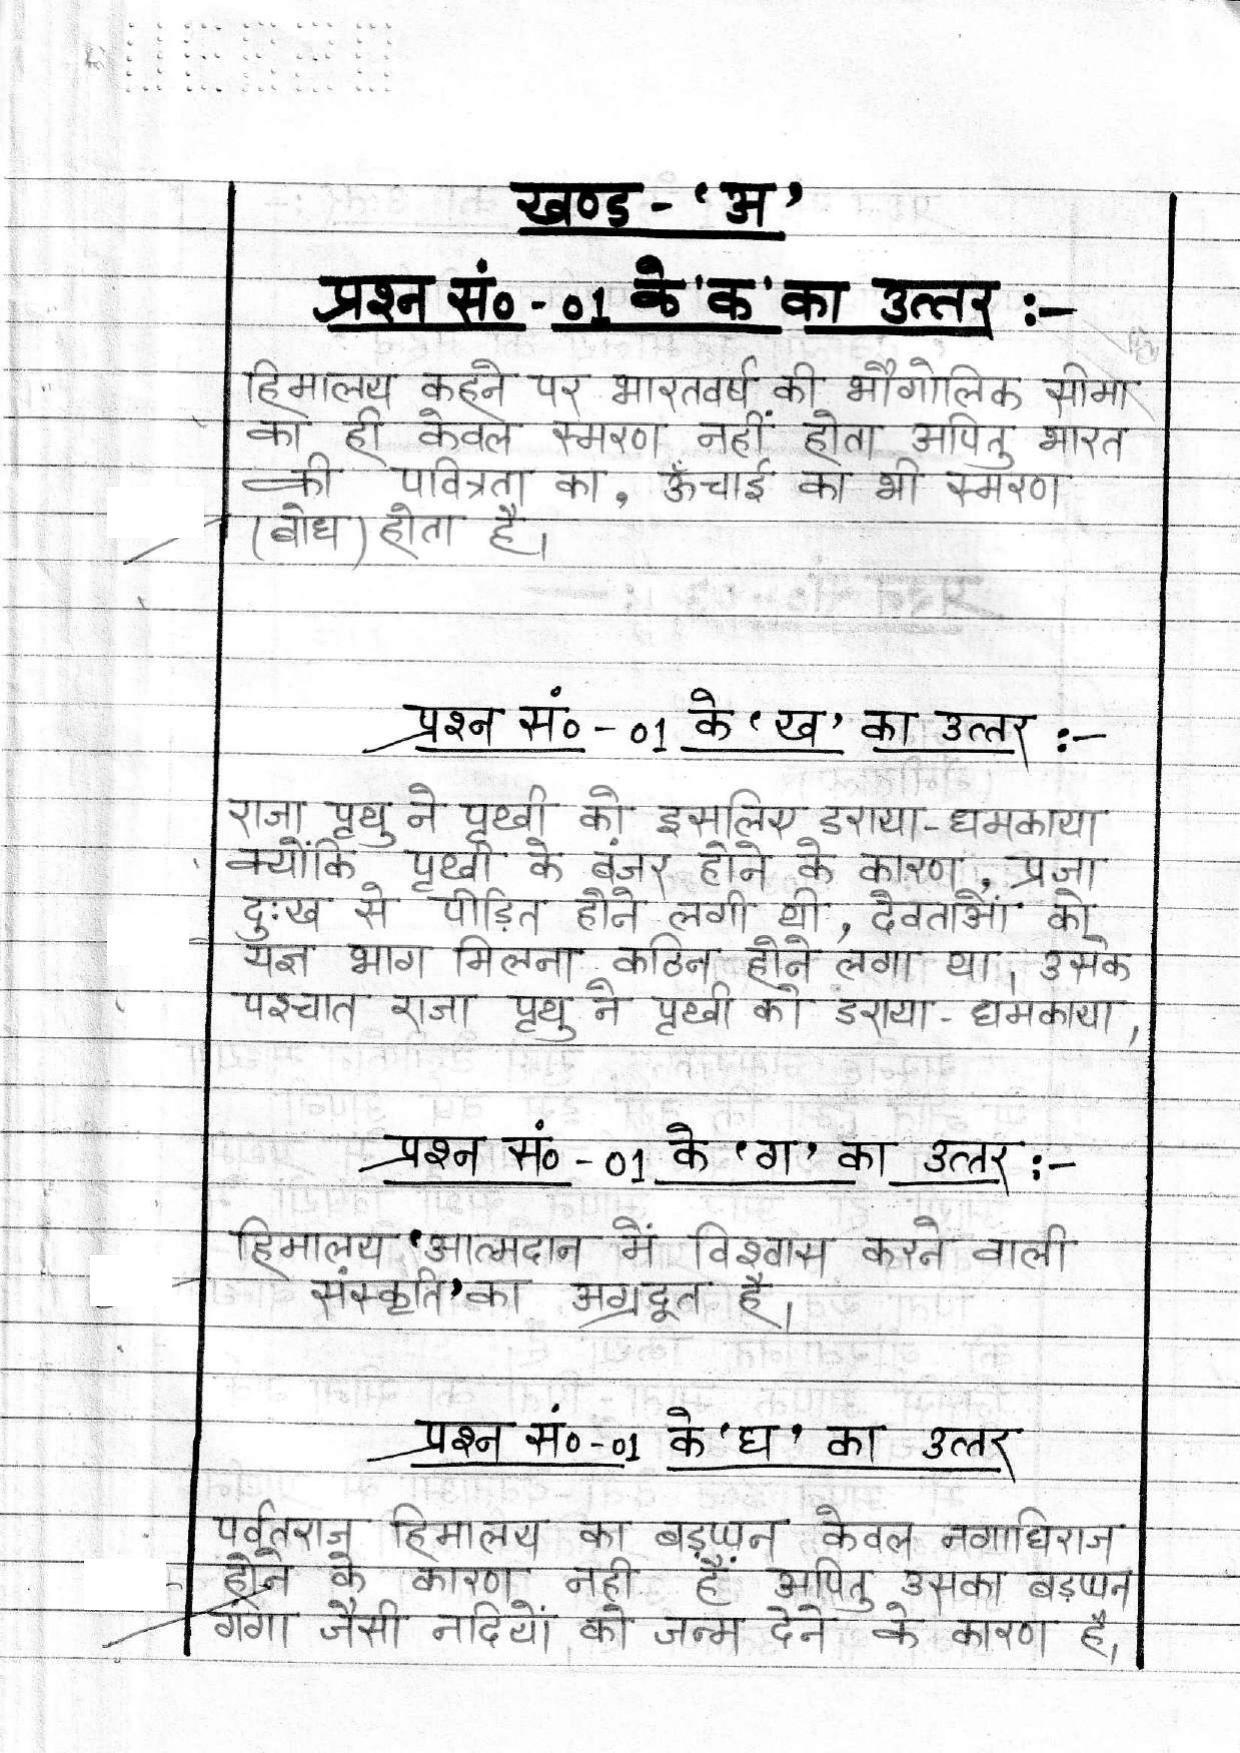 खण्ड - 'अ'
प्रश्न सं० - 01 के 'क' का उत्तर :-
हिमालय कहने पर भारतवर्ष की भौगोलिक सीमा
का ही केवल स्मरण नहीं होता अपितु भारत
की पवित्रता का, ऊँचाई का भी स्मरण
(बोध) होता है।
प्रश्न सं० - 01 के 'ख' का उत्तर :-
राजा पृथु ने पृथ्वी को इसलिए डराया-धमकाया
क्योंकि पृथ्वी के बंजर होने के कारण, प्रजा
दुःख से पीड़ित होने लगी थी, देवताओं को
यज्ञ भाग मिलना कठिन होने लगा था। उसके
पश्चात राजा पृथु ने पृथ्वी को डराया-धमकाया,
प्रश्न सं० - 01 के 'ग' का उत्तर :-
हिमालय 'आत्मदान में विश्वास करने वाली
संस्कृति' का अग्रदूत है।
प्रश्न सं०-01 के 'घ' का उत्तर
पर्वतराज हिमालय का बड़प्पन केवल नगाधिराज
होने के कारण नही हैं अपितु उसका बड़प्पन
गंगा जैसी नदियों को जन्म देने के कारण है,